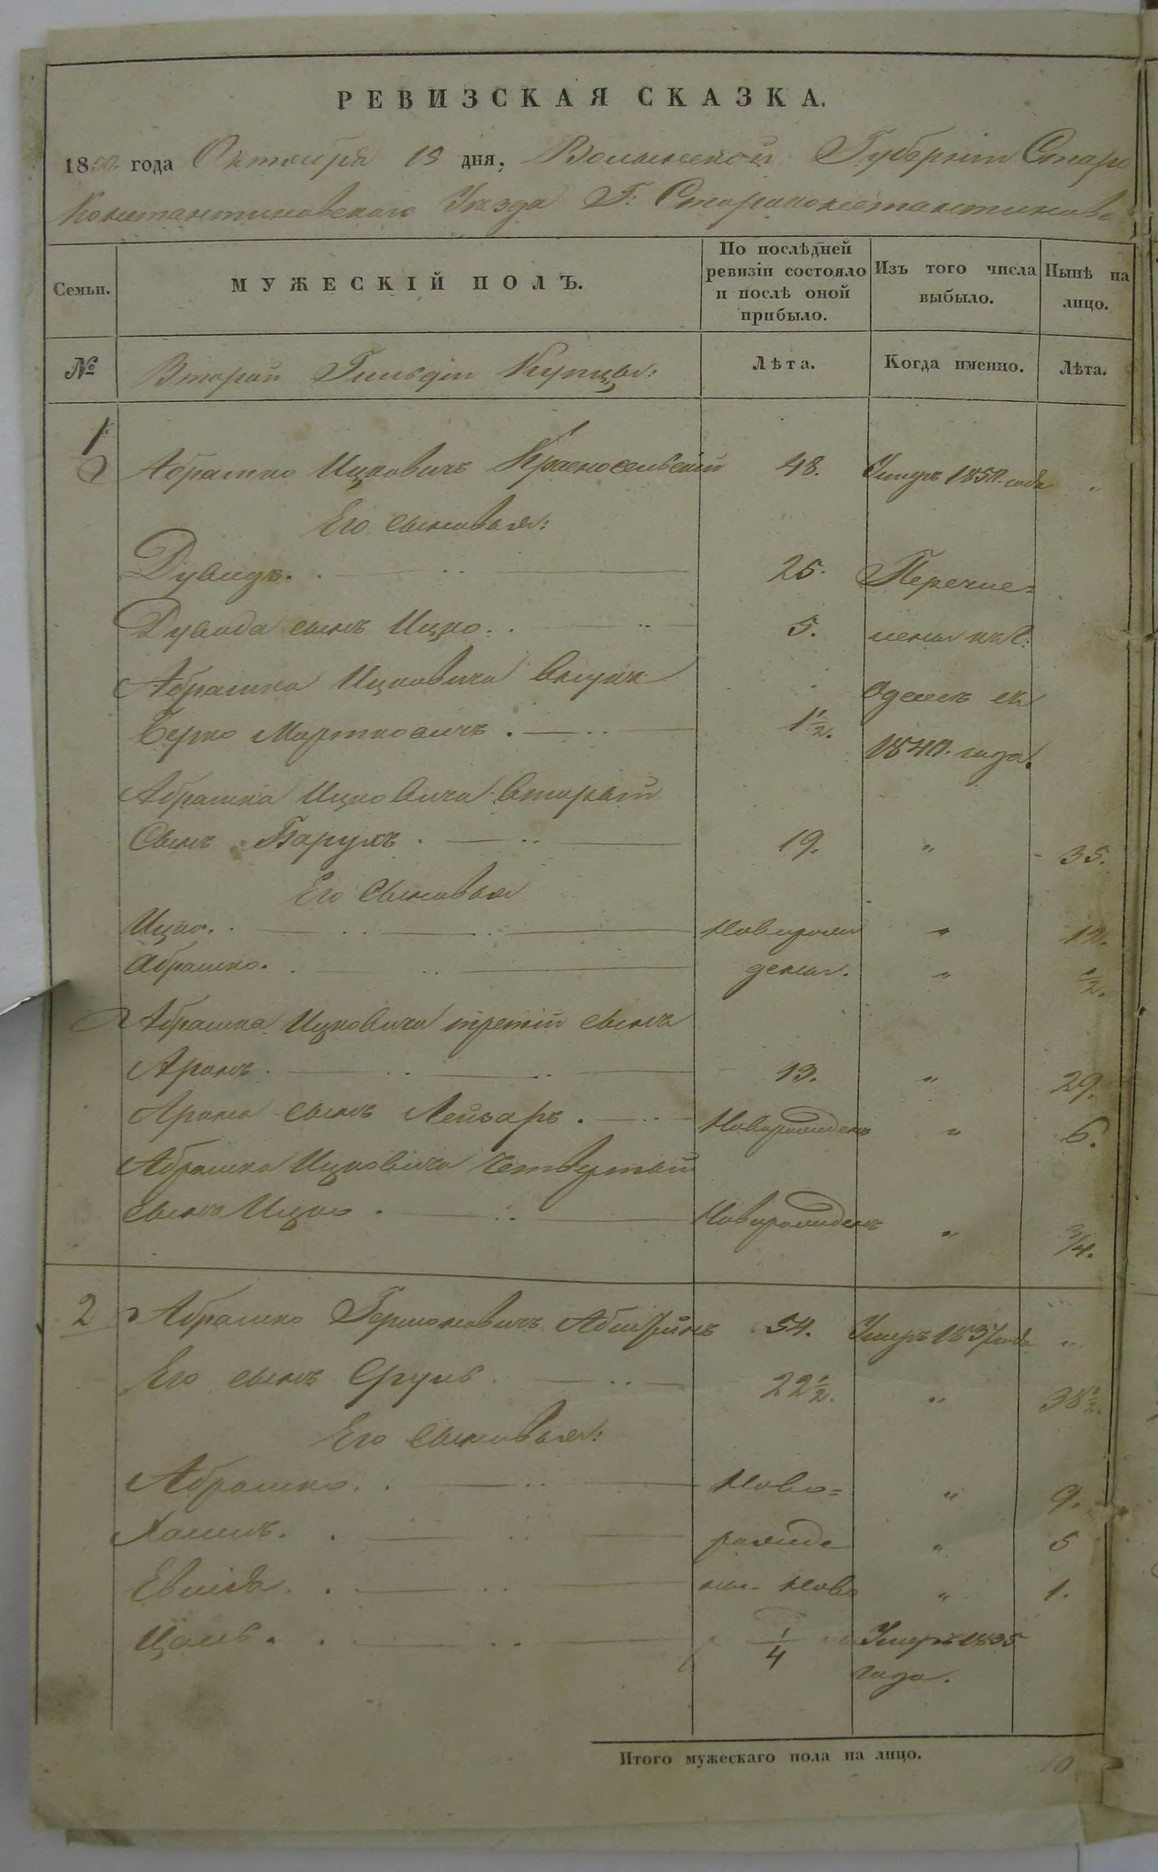 РЕВИЗСКАЯ СКАЗКА.
1850 года Октября 19 дня, Волынской Губерніи Старо
Константиновского Уезда Г: Староконстантинова
Семьи.
МУЖЕСКІЙ ПОЛЪ.
По послѣдней ревизіи состояло и послѣ оной прибыло.
Изъ того числа выбыло.
Нынѣ на лицо.
№
Второй Гильдіи Купцы:
Лѣта.
Когда именно.
Лѣта.
1
Абрашко Ицковичъ Красносельскій 48. Умеръ 1850. года "
Его сыновья:
Дувидъ. 25. Перечис=
Дувида сынъ Ицко. 5. лены въ
Абрашка Ицковича внукъ Одессъ
Берко Мортковичъ. 1½. 1840. года.
Абрашка Ицковича вторый
Сынъ Барухъ. 19. " 35.
Его Сыновья
Ицко. Новорож " 12.
Абрашко. дены. " ½.
Абрашка Ицковича третій сынъ
Аронъ. 13. " 29.
Арона сынъ Лейзаръ. Новорожденъ " 6.
Абрашка Ицковича четвертый
сынъ Ицко. Новорожденъ " ¾.
2 Абрашко Гершковичъ 54. Умеръ 1837 года "
Его сынъ Сруль. 22½. " 38½.
Его сыновья:
Абрашко. Ново= " 9.
Хаимъ. рожде " 5
ны. Ново " 1.
¼ Умеръ 1835
года.
Итого мужескаго пола на лицо. 10